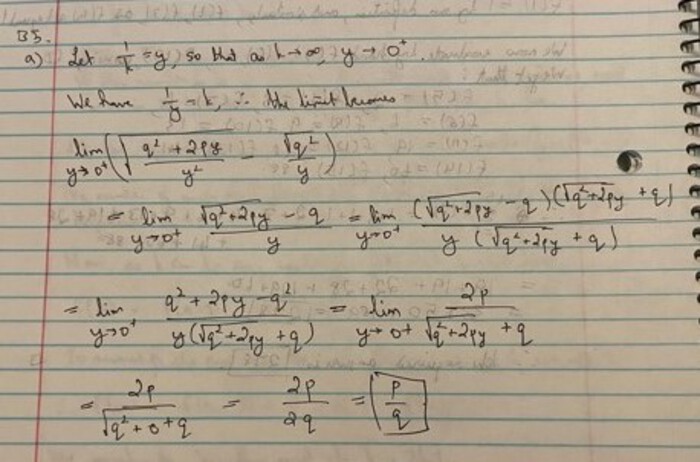 B5.
a) Let 1/k = y, so that as k → ∞, y → 0⁺
We have 1/y = k, ∴ the limit becomes
lim_{y→0⁺} (√((q² + 2py)/y²) − √q²/y)
= lim_{y→0⁺} (√(q²+2py) − q)/y = lim_{y→0⁺} ((√(q²+2py) − q)(√(q²+2py) + q))/(y (√(q²+2py) + q))
= lim_{y→0⁺} (q² + 2py − q²)/(y(√(q²+2py) + q)) = lim_{y→0⁺} 2p/(√(q²+2py) + q)
= 2p/(√(q²+0) + q) = 2p/2q = p/q